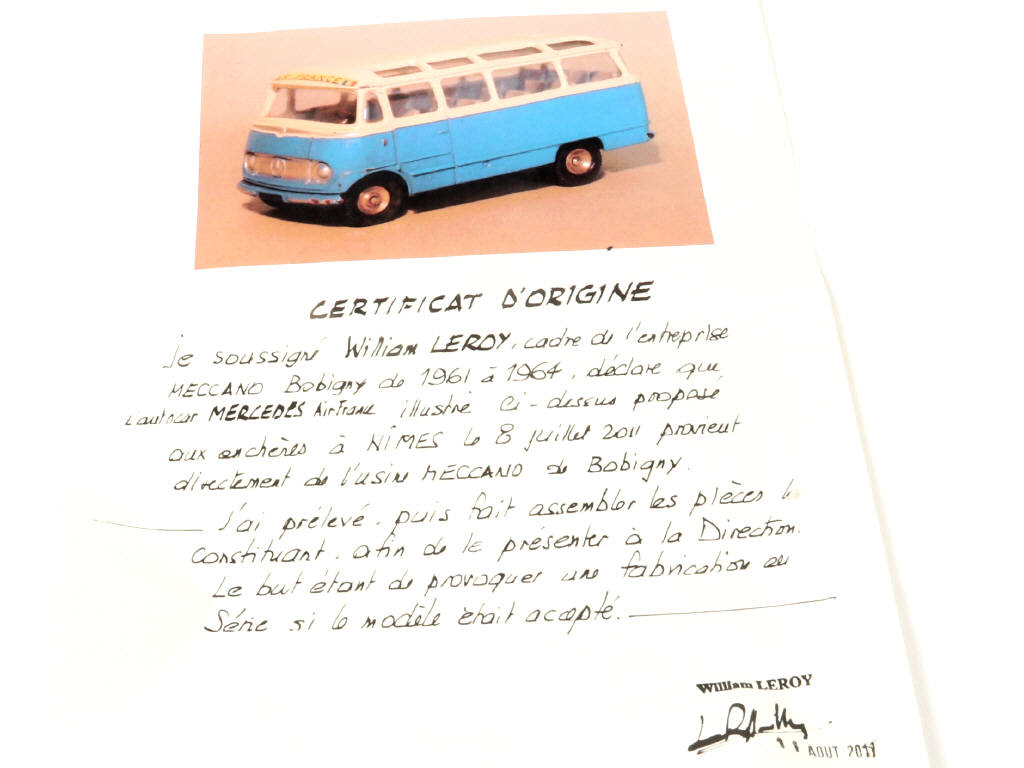 FRANCE
CERTIFICAT D'ORIGINE
Je soussigné William LEROY, cadre de l'entreprise
MECCANO Bobigny de 1961 à 1964, déclare que
L'autocar MERCEDES AirFrance illustré ci-dessus proposé
aux enchères à NÎMES le 8 juillet 2011 provient
directement de l'usine MECCANO de Bobigny.
J'ai prélevé, puis fait assembler les pièces le
constituant, afin de le présenter à la Direction.
Le but étant de provoquer une fabrication en
Série si le modèle était accepté.
William LEROY
AOUT 2011